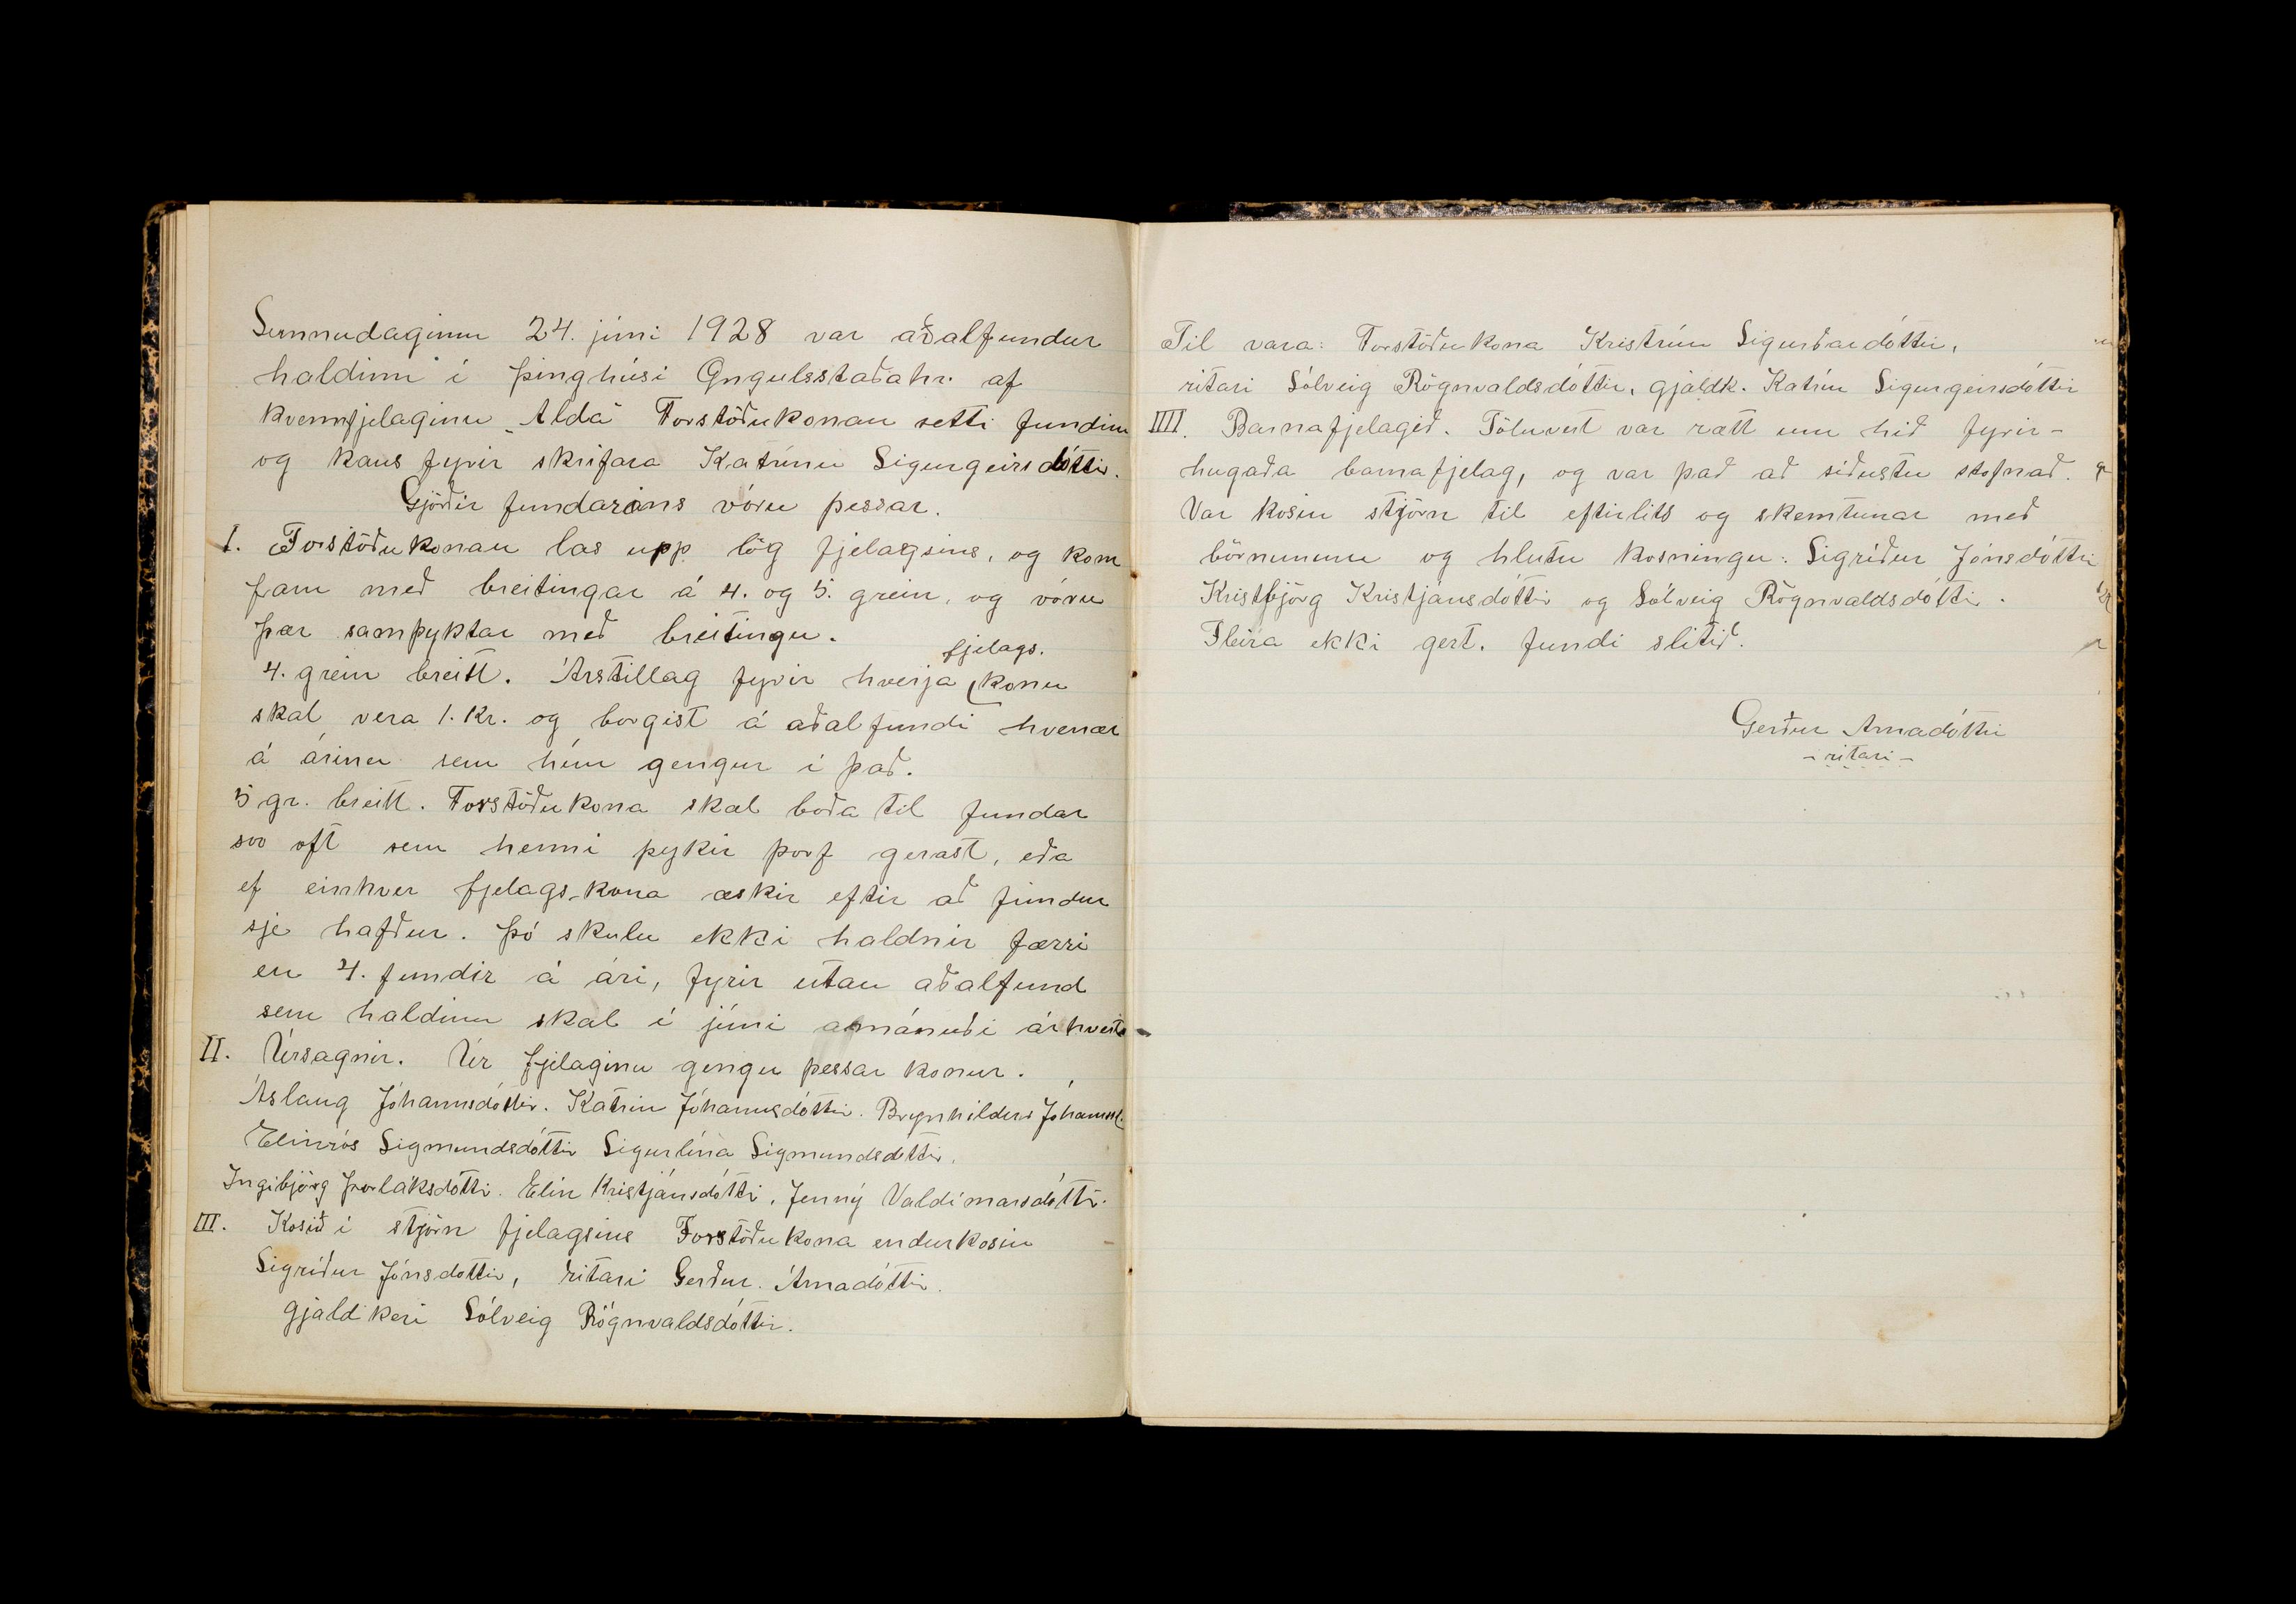 Sunnudaginn 24. júni 1928 var aðalfundur
haldinn í þinghúsi Öngulsstaðahr. af
kvennfjelaginu "Aldá" Forstöðukonan setti fundinn
og kaus fyrir skrifara Katrínu Sigurgeirsdóttir.
Gjörðir fundarins vóru þessar.
I. Forstöðukonan las upp lög fjelagsins, og kom
fram með breitingar á 4. og 5. grein, og vóru
þær samþyktar með breitingu.
4. grein breitt. Árstillag fyrir hverja fjelags. konu
skal vera 1. kr. og borgist á aðalfundi hvenær
á árinu sem hún gengur í það.
5 gr. breitt. Forstöðukona skal boða til fundar
svo oft sem henni þykir þörf gerast, eða
ef einhver fjelags-kona æskir eftir að fundur
sje hafður. Þó skulu ekki haldnir færri
en 4. fundir á ári, fyrir utan aðalfund
sem haldinn skal í júni mánuði ár hvert
II. Úrsagnir. Úr fjelaginu gengu þessar konur.
Áslaug Jóhannsdóttir. Katrín Jóhannsdóttir. Brynhildur Jóhannsd.
Elinrós Sigmundsdóttir Sigurlína Sigmundsdóttir.
Ingibjörg Þorláksdótti. Elín Kristjánsdótti. Jenný Valdimarsdóttir.
III. Kosið í stjórn fjelagsins Forstöðukona endurkosin
Sigríður Jónsdottir, ritari Gerður. Árnadóttir.
gjaldkeri Sólveig Rögnvaldsdóttir.
Til vara: Forstöðukona Kristrún Sigurðardóttir,
ritari Sólveig Rögnvaldsdóttir, gjaldk. Katrín Sigurgeirsdóttir
IIII. Barnafjelagið. Töluvert var rætt um hið fyrir-
hugaða barnafjelag, og var það að síðustu stofnað.
Var kosin stjórn til eftirlits og skemtunar með
börnunum og hlutu kosningu: Sigríður Jónsdóttir
Kristbjörg Kristjánsdóttir og Sólveig Rögnvaldsdóttir.
Fleira ekki gert. Fundi slitið.
Gerður Árnadóttir
- ritari -